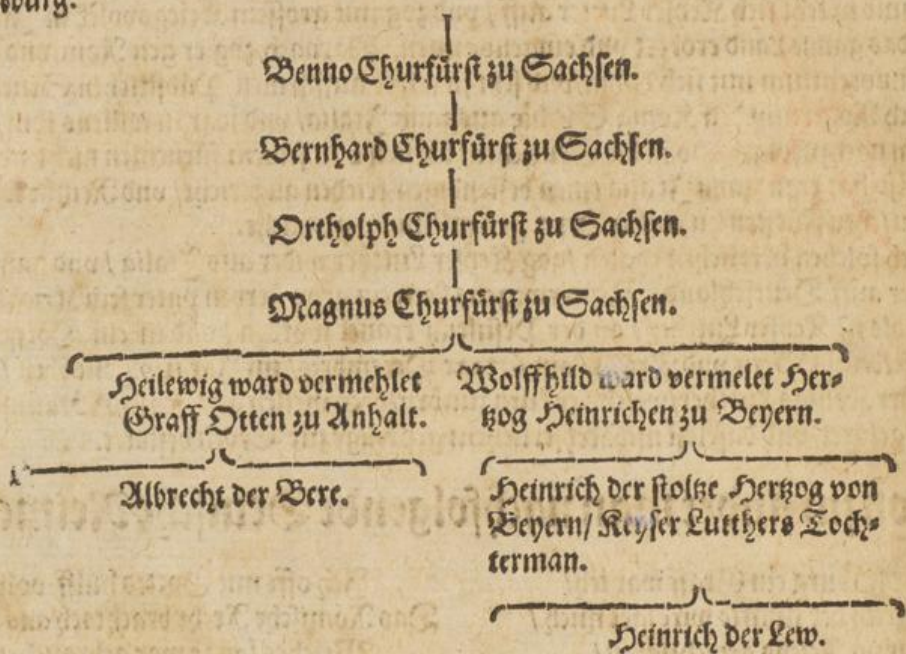 Benno Churfürst zu Sachsen.
Bernhard Churfürst zu Sachsen.
Ortholph Churfürst zu Sachsen.
Magnus Churfürst zu Sachsen.
Heilewig ward vermehlet
Graff Otten zu Anhalt.
Wolffhild ward vermelet Her⸗
tzog Heinrichen zu Beyern.
Albrecht der Bere.
Heinrich der stoltze Hertzog von
Beyern/ Keyser Lutthers Toch⸗
terman.
Heinrich der Lew.